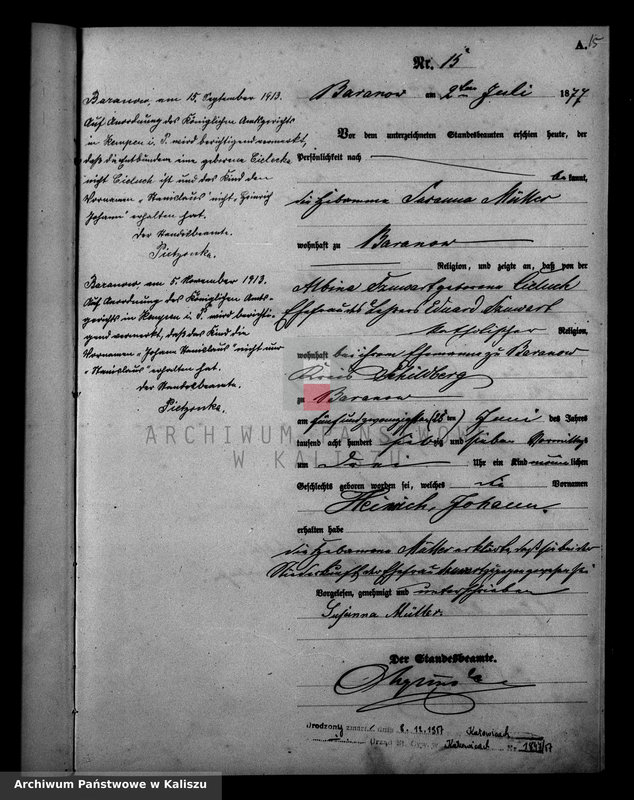 A. 15
Nr. 15
Baranow am 2ten Juli 1877
Vor dem unterzeichneten Standesbeamten erschien heute, der
Persönlichkeit nach
be kannt,
die Hebamme Susanna Müller
wohnhaft zu Baranow
Religion, und zeigte an, daß von der
Albina geborene Cieluch
Ehefrau des Lehrers Eduard
katholischer Religion,
wohnhaft bei ihrem Ehemanne zu Baranow
Kreis Schildberg
zu Baranow
am fünfundzwanzigsten (25ten) Juni des Jahres
tausend acht hundert siebzig und sieben Vormittags
um drei Uhr ein Kind männlichen
Geschlechts geboren worden sei, welches die Vornamen
Heinrich, Johann
erhalten habe
die Hebamme Müller erklärte, daß sie bei der
Niederkunft der Ehefrau zugegen gewesen sei
Vorgelesen, genehmigt und unterschrieben
Susanna Müller.
Der Standesbeamte.
Baranow, am 15. September 1913.
Auf Anordnung des Königlichen Amtsgerichts
in Kempen i. P. wird berichtigend vermerkt,
daß die Entbundene eine geborene Cielecka
nicht Cieluch ist und das Kind den
Vornamen „Stanislaus" nicht „Heinrich
Johann" erhalten hat.
Der Standesbeamte.
Pietzonka.
Baranow, am 5. November 1913.
Auf Anordnung des Königlichen Amts-
gerichts in Kempen i. P. wird berichti-
gend vermerkt, daß das Kind die
Vornamen „Johann Stanislaus" nicht nur
„Stanislaus" erhalten hat.
Der Standesbeamte.
Pietzonka.
Urodzony zmarł dnia 8.12.1957 w Katowicach
Urząd St. Cyw. w Katowicach Nr 1897/57
ARCHIWUM PAŃSTWOWE
W KALISZU
Archiwum Państwowe w Kaliszu